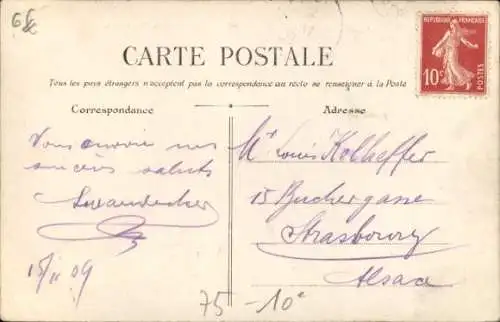 6
CARTE POSTALE
Tous les pays étrangers n'acceptent pas la correspondance au recto se renseigner à la Poste
Correspondance
Adresse
REPUBLIQUE FRANÇAISE
10c
POSTES
Vous envoie mes
sincères saluts
15/11 09
Mr Louis Kolbeffer
15 Buchergasse
Strasbourg
Alsace
75 - 10c